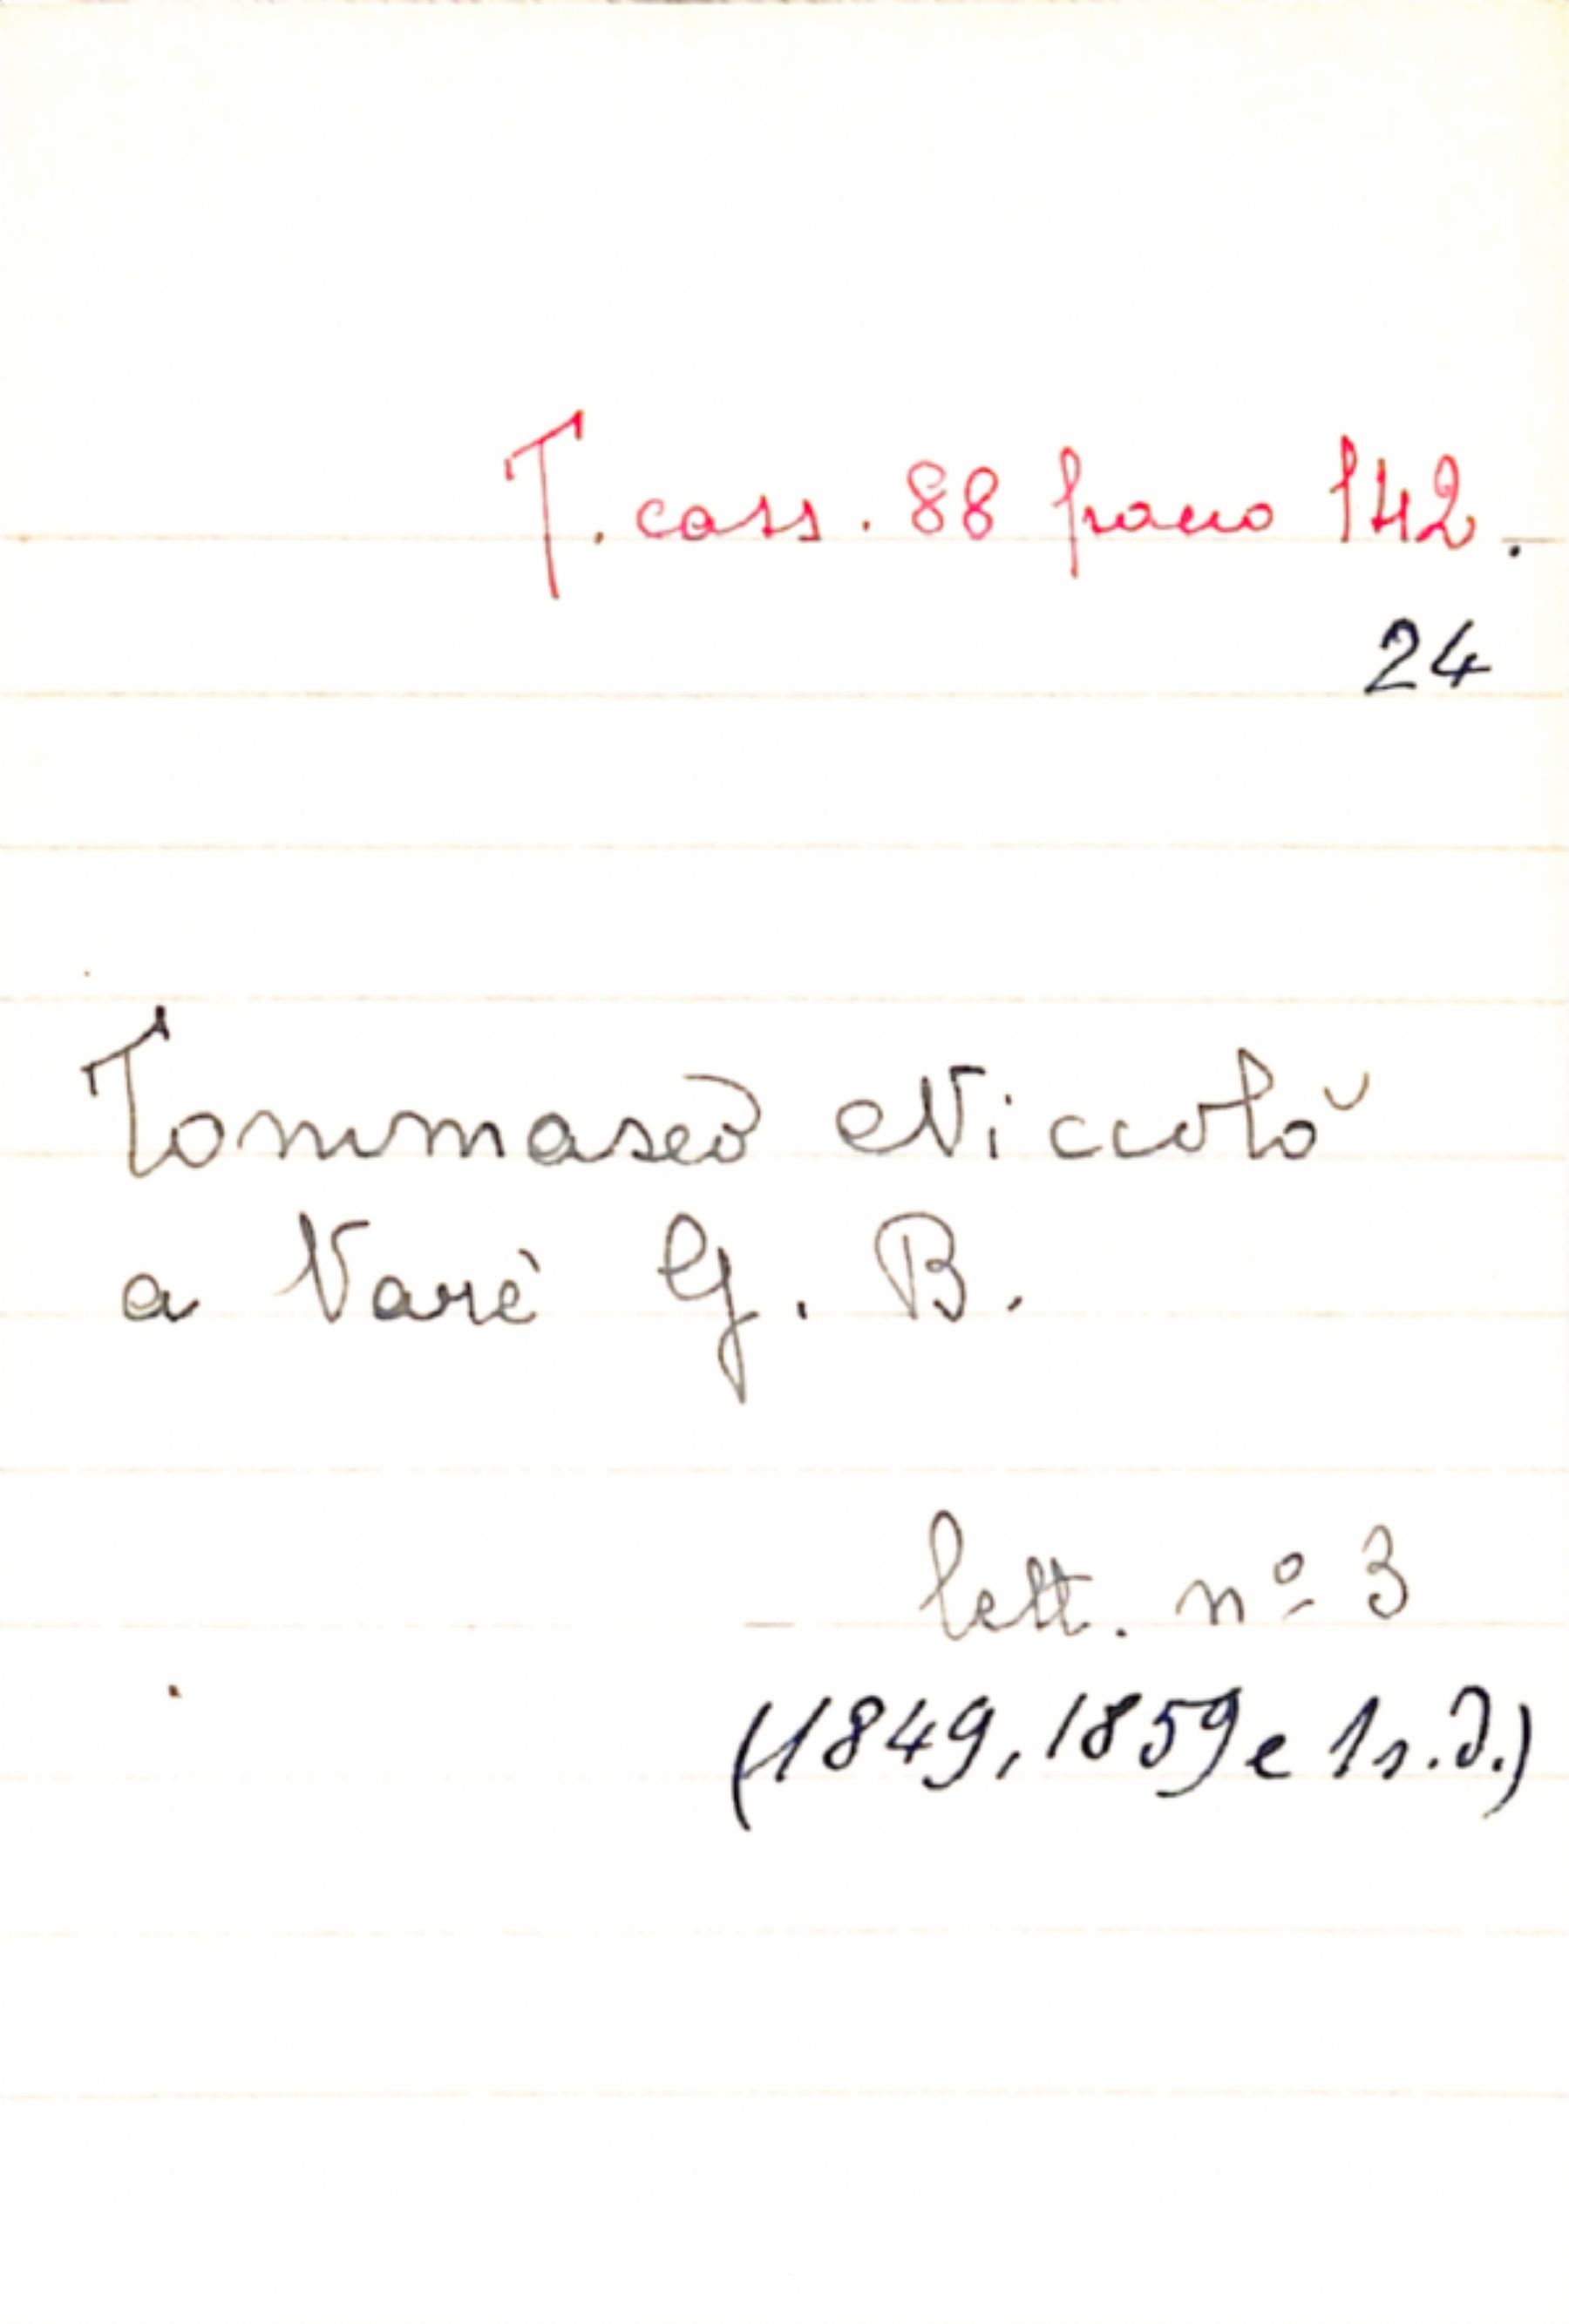 T. cass. 88 pacco 142.
24
Tommaseo Niccolò
a Varè G. B.
lett. nº 3
(1849, 1859 e 1 s.d.)